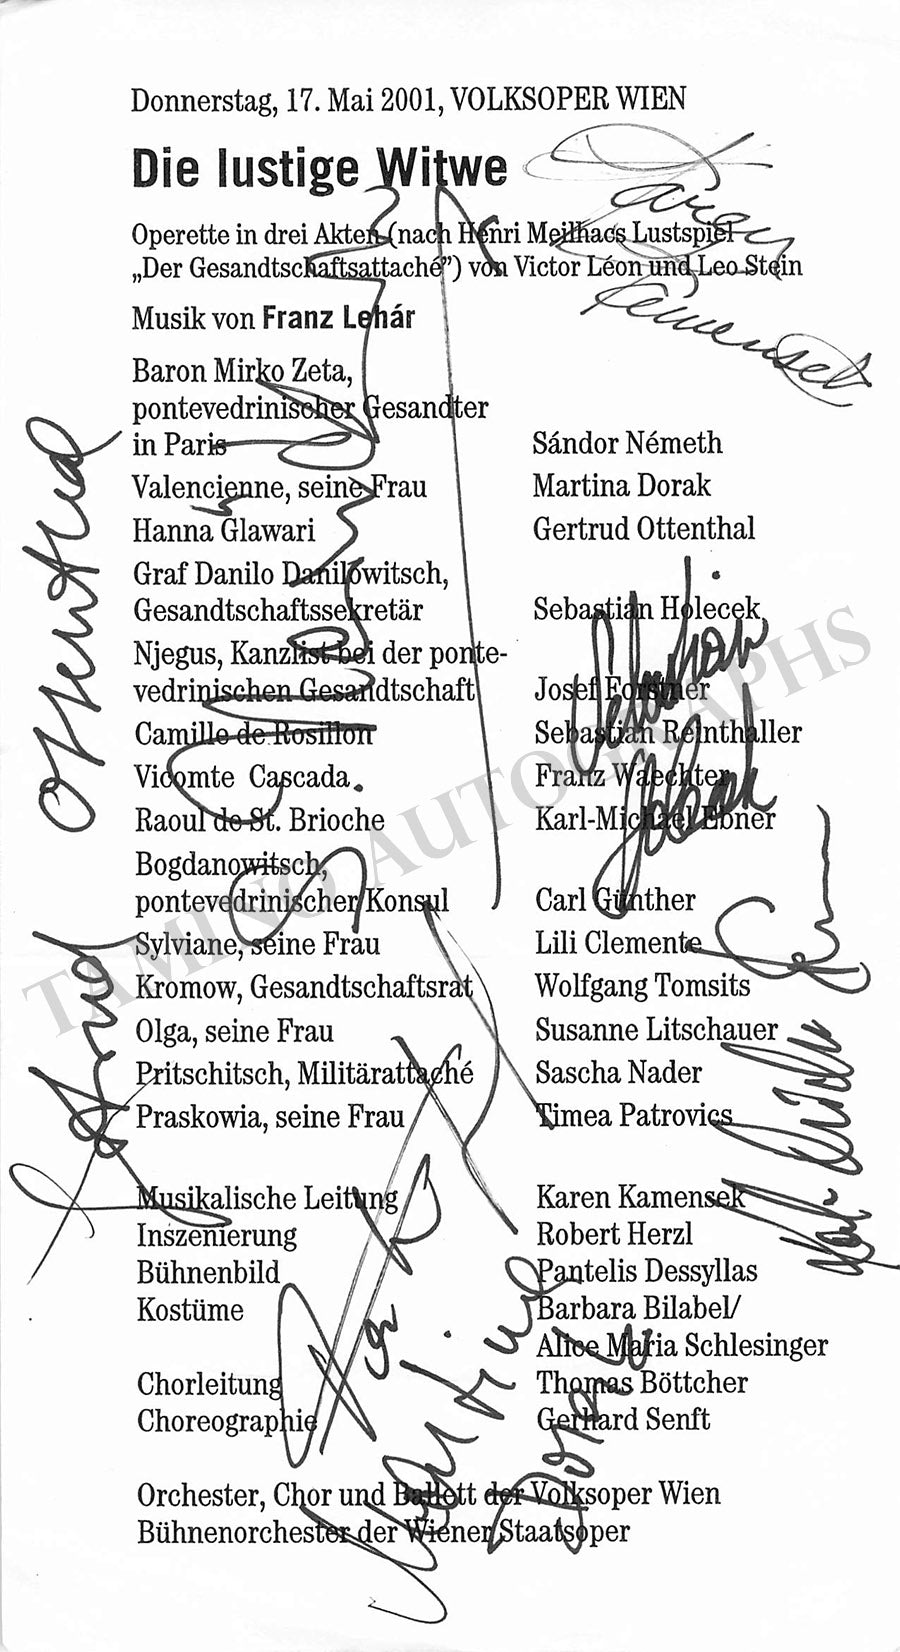 Donnerstag, 17. Mai 2001, VOLKSOPER WIEN
Die lustige Witwe
Operette in drei Akten (nach Henri Meilhacs Lustspiel
„Der Gesandtschaftsattaché”) von Victor Léon und Leo Stein
Musik von Franz Lehár
Karen
Kamensek
Baron Mirko Zeta,
pontevedrinischer Gesandter
in Paris Sándor Németh
Valencienne, seine Frau Martina Dorak
Hanna Glawari Gertrud Ottenthal
Graf Danilo Danilowitsch,
Gesandtschaftssekretär Sebastian Holecek
Njegus, Kanzlist bei der ponte-
vedrinischen Gesandtschaft Josef Forstner
Camille de Rosillon Sebastian Reinthaller
Vicomte Cascada Franz Waechter
Raoul de St. Brioche Karl-Michael Ebner
Bogdanowitsch,
pontevedrinischer Konsul Carl Günther
Sylviane, seine Frau Lili Clemente
Kromow, Gesandtschaftsrat Wolfgang Tomsits
Olga, seine Frau Susanne Litschauer
Pritschitsch, Militärattaché Sascha Nader
Praskowia, seine Frau Timea Patrovics
Musikalische Leitung Karen Kamensek
Inszenierung Robert Herzl
Bühnenbild Pantelis Dessyllas
Kostüme Barbara Bilabel/
Alice Maria Schlesinger
Chorleitung Thomas Böttcher
Choreographie Gerhard Senft
Orchester, Chor und Ballett der Volksoper Wien
Bühnenorchester der Wiener Staatsoper
Ottenthal
Sebastian
Holecek
Martina
Dorak
TAMINO AUTOGRAPHS